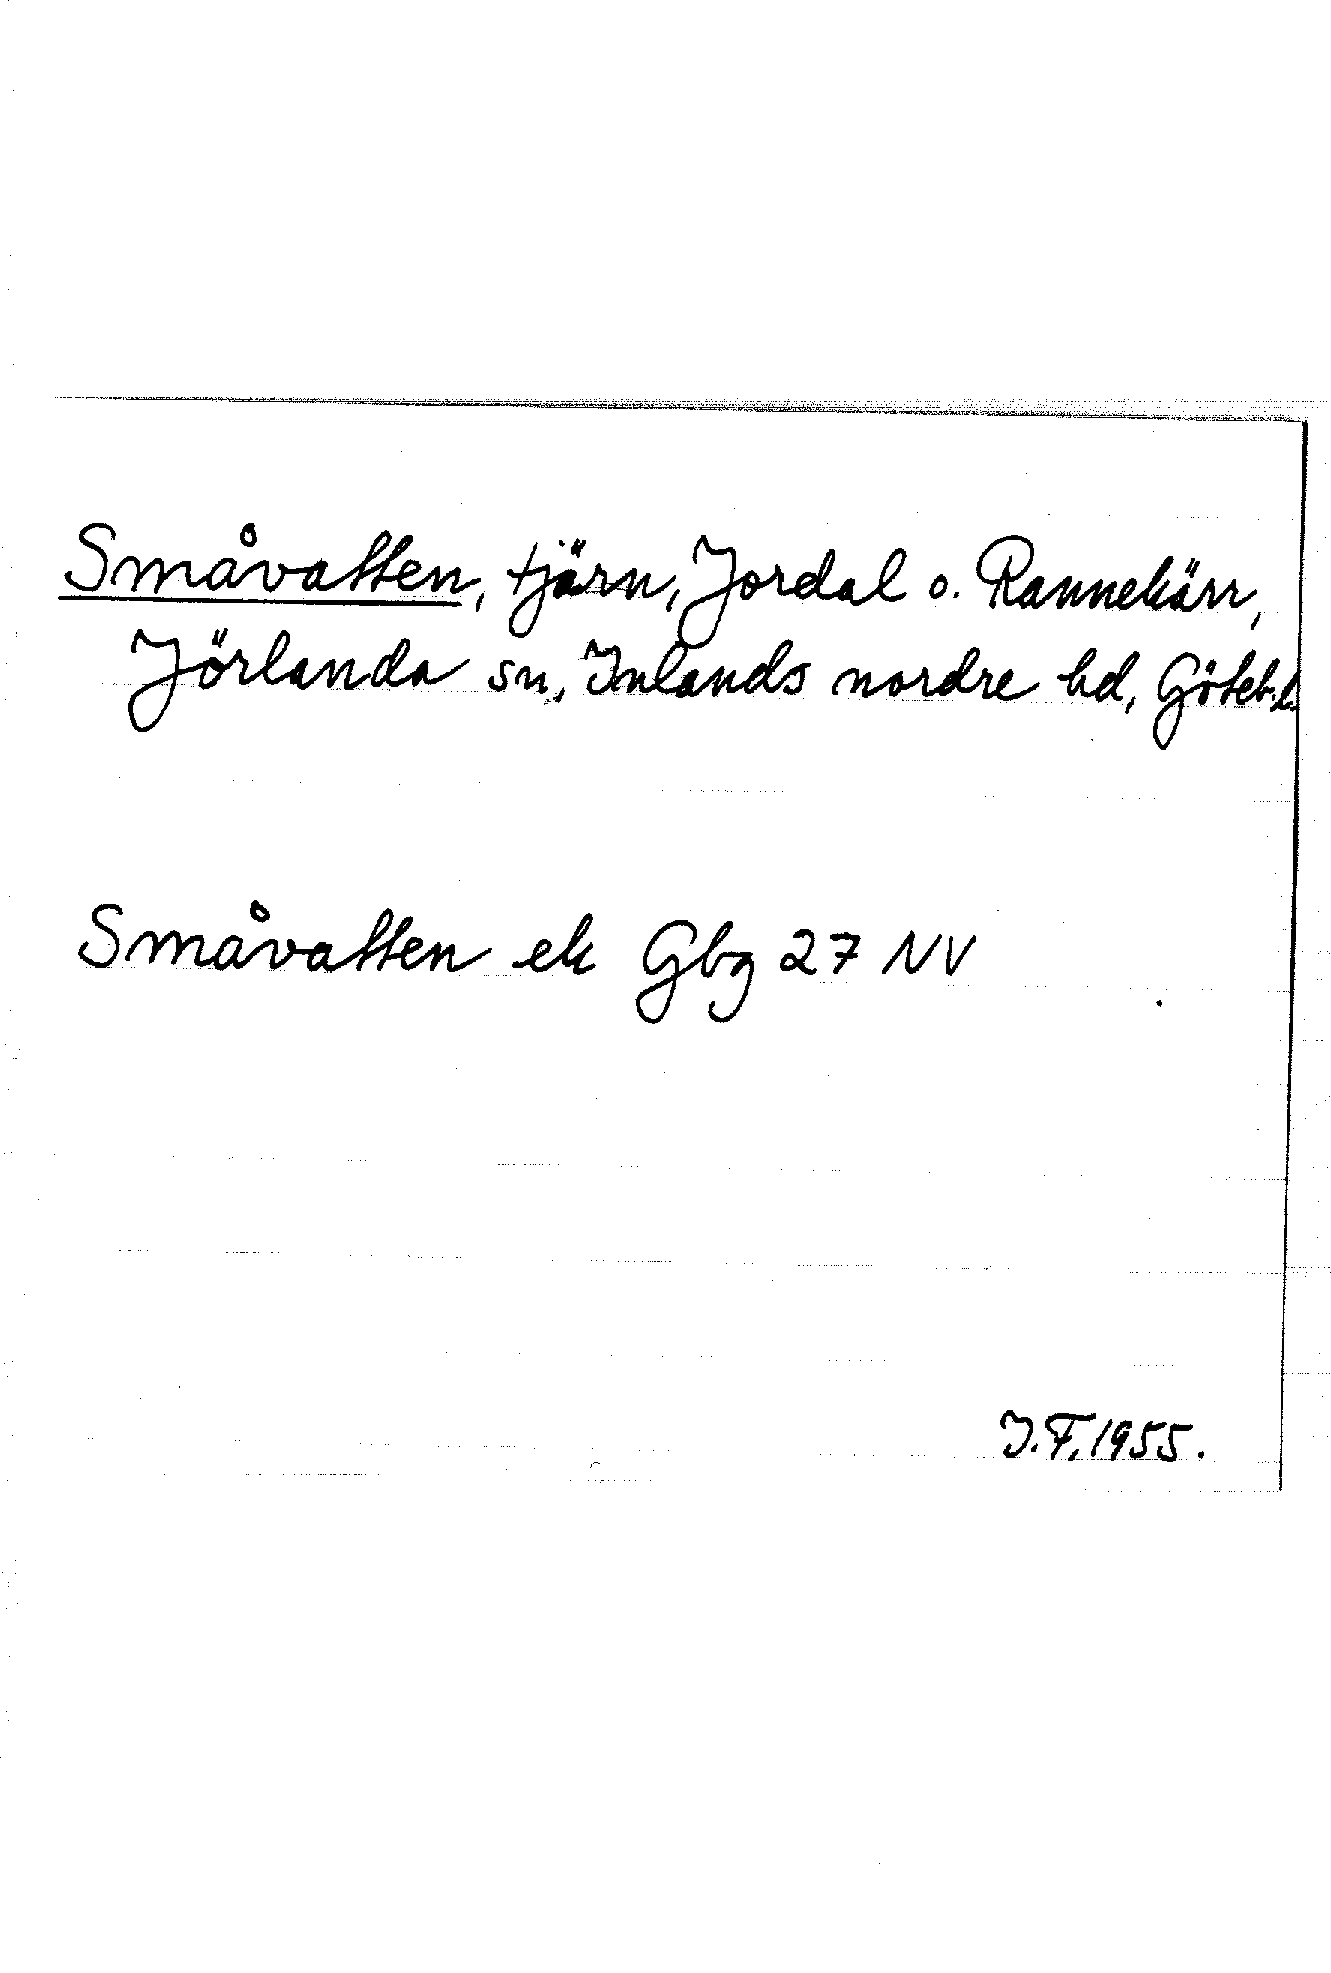 Småvatten, tjärn, Jordal o. Rannekärr,
Jörlanda sn, Inlands nordre hd, Göteb.l.
Småvatten ek Gbg 27 NV
J.F. 1955.